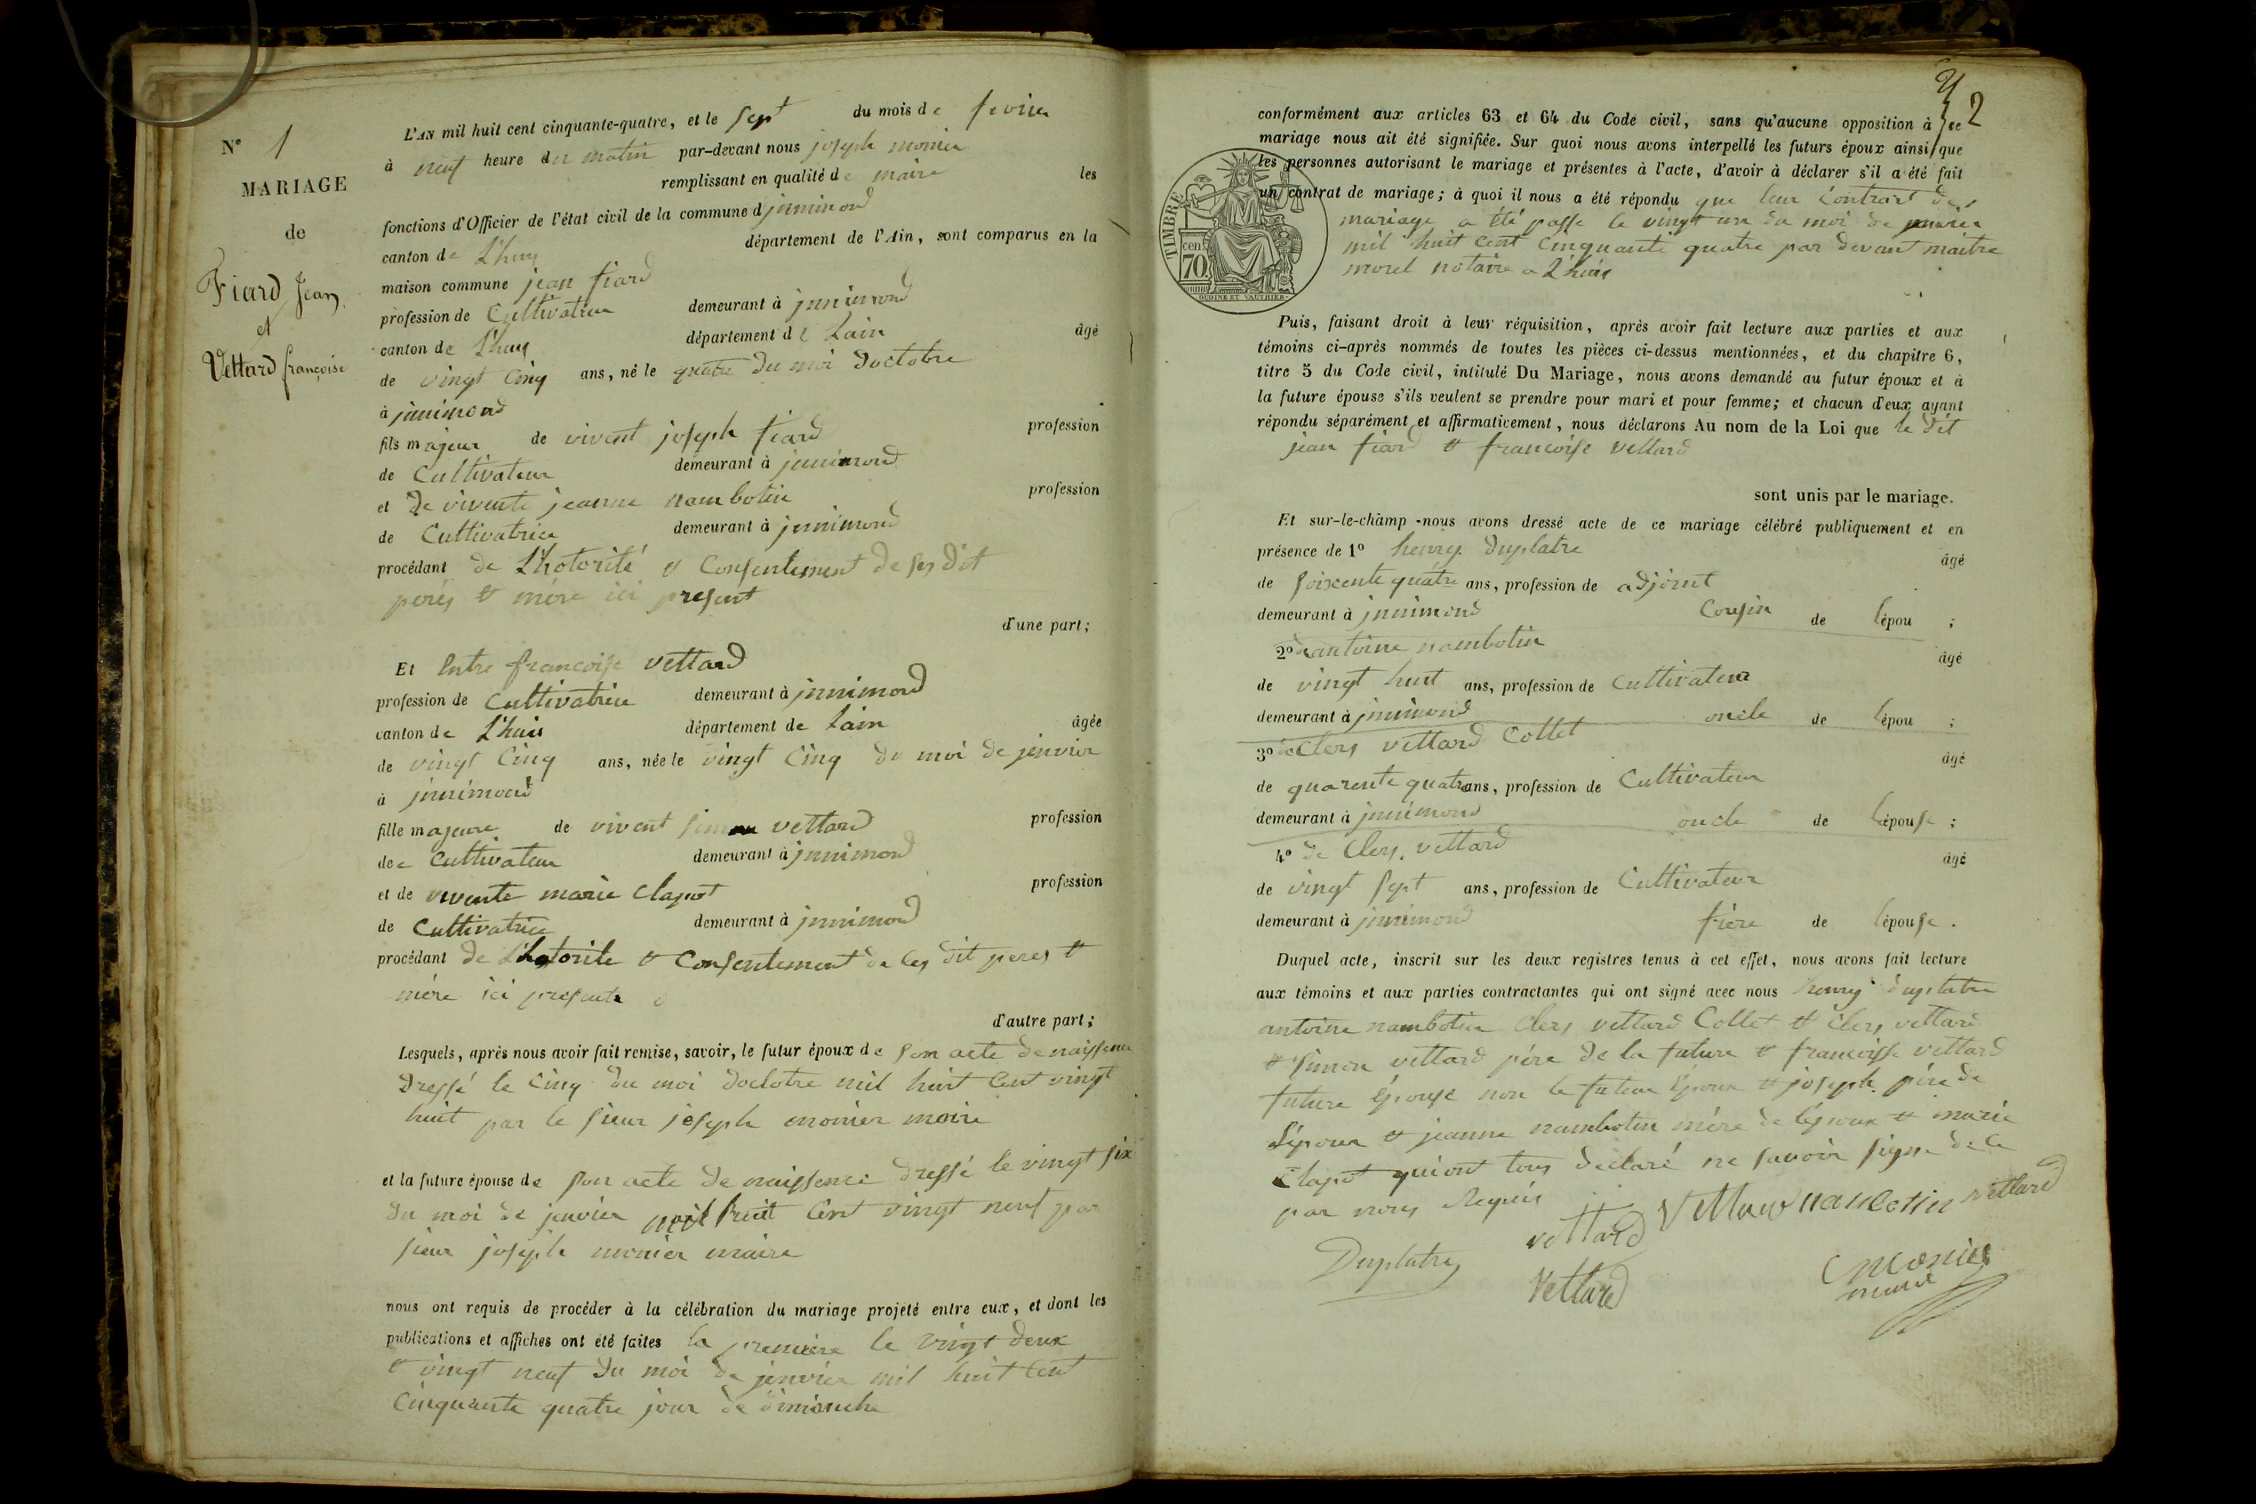 N° 1
MARIAGE
de
Fiard Jean
et
Vettard françoise
L'AN mil huit cent cinquante-quatre, et le sept du mois de fevrier
à neuf heure du matin par-devant nous joseph monier
remplissant en qualité de maire les
fonctions d'Officier de l'état civil de la commune d jnnimond
canton de L'huis département de l'Ain, sont comparus en la
maison commune jean fiard
profession de Cultivateur demeurant à jnnimond
canton de L'huis département de Lain âgé
de vingt Cinq ans, né le quatre du moi doctobre
à jnnimond
fils majeur de vivent joseph fiard profession
de Cultivateur demeurant à jnnimond
et de vivente jeanne nambotin profession
de Cultivatrice demeurant à jnnimond
procédant de L'hotorité et Consentement de ses dit
perés et mére ici present
d'une part;
Et Entre francoise vettard
profession de Cultivatrice demeurant à jnnimond
canton de L'huis département de Lain âgée
de vingt Cinq ans, née le vingt Cinq du moi de jenvier
à jnnimond
fille majeure de vivent simon vettard profession
de Cultivateur demeurant à jnnimond
et de vivente marie Clapot profession
de Cultivatrice demeurant à jnnimond
procédant de L'hotorite et Consentement de ces dit peres et
mére ici presente
d'autre part;
Lesquels, après nous avoir fait remise, savoir, le futur époux de son acte de naissence
Dressé le Cinq du moi doctobre mil huit Cent vingt
huit par le sieur joseph monier maire
et la future épouse de son acte de naissence dressé le vingt six
du moi de jenvier mil huit Cent vingt neuf par
sieur joseph monier maire
nous ont requis de procéder à la célébration du mariage projeté entre eux, et dont les
publications et affiches ont été faites la premiere le vingt deux
et vingt neuf du moi de jenvier mil huit Cent
Cinquante quatre jour de dimanche
2
conformément aux articles 63 et 64 du Code civil, sans qu'aucune opposition à ce
mariage nous ait été signifiée. Sur quoi nous avons interpellé les futurs époux ainsi que
les personnes autorisant le mariage et présentes à l'acte, d'avoir à déclarer s'il a été fait
un contrat de mariage; à quoi il nous a été répondu que leur Contrart de
mariage a été passe le vingt un du moi de jenvier
mil huit cent Cinquante quatre par devant maitre
morel notaire a L'huis
TIMBRE
cent 70
OUDINE ET VAUTHIER
Puis, faisant droit à leur réquisition, après avoir fait lecture aux parties et aux
témoins ci-après nommés de toutes les pièces ci-dessus mentionnées, et du chapitre 6,
titre 5 du Code civil, intitulé Du Mariage, nous avons demandé au futur époux et à
la future épouse s'ils veulent se prendre pour mari et pour femme; et chacun d'eux ayant
répondu séparément et affirmativement, nous déclarons Au nom de la Loi que le dit
jean fiard et francoise vettard
sont unis par le mariage.
Et sur-le-champ nous avons dressé acte de ce mariage célébré publiquement et en
présence de 1° henry duplatre âgé
de soixente quatre ans, profession de adjoint
demeurant à jnnimond Cousin de l'épou ;
2° antoine nambotin âgé
de vingt huit ans, profession de Cultivateur
demeurant à jnnimond oncle de l'épou ;
3° Clers vettard Collet âgé
de quarente quatre ans, profession de Cultivateur
demeurant à jnnimond oncle de l'épouse ;
4° de Clers vettard âgé
de vingt sept ans, profession de Cultivateur
demeurant à jnnimond frére de l'épouse .
Duquel acte, inscrit sur les deux registres tenus à cet effet, nous avons fait lecture
aux témoins et aux parties contractantes qui ont signé avec nous henry duplatre
antoine nambotin Clers vettard Collet et Clers vettard
et simon vettard pére de la future et francoisse vettard
future épouse non le futeur époux et joseph pére de
L'époux et jeanne nambotin mére de l'époux et marie
Clapot qui ont tous déclaré ne savoir signe de Ce
par nous Requis
vettard Vettard nanbotin vettard
Duplatre Vettard monier
maire